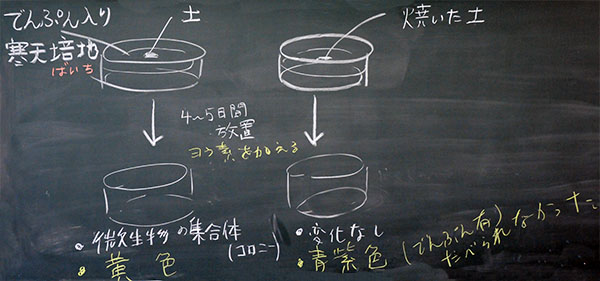 でんぷん入り
寒天培地
ばいち
土
焼いた土
4～5日間
放置
ヨウ素を加える
・微生物の集合体
(コロニー)
・黄色
・変化なし
・青紫色(でんぷん有)
たべられなかった